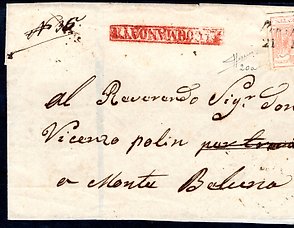 N 36.
RACCOMANDATA
21
20a
Al Reverendo Sigr Don
Vicenzo polin
a Monte Beluna